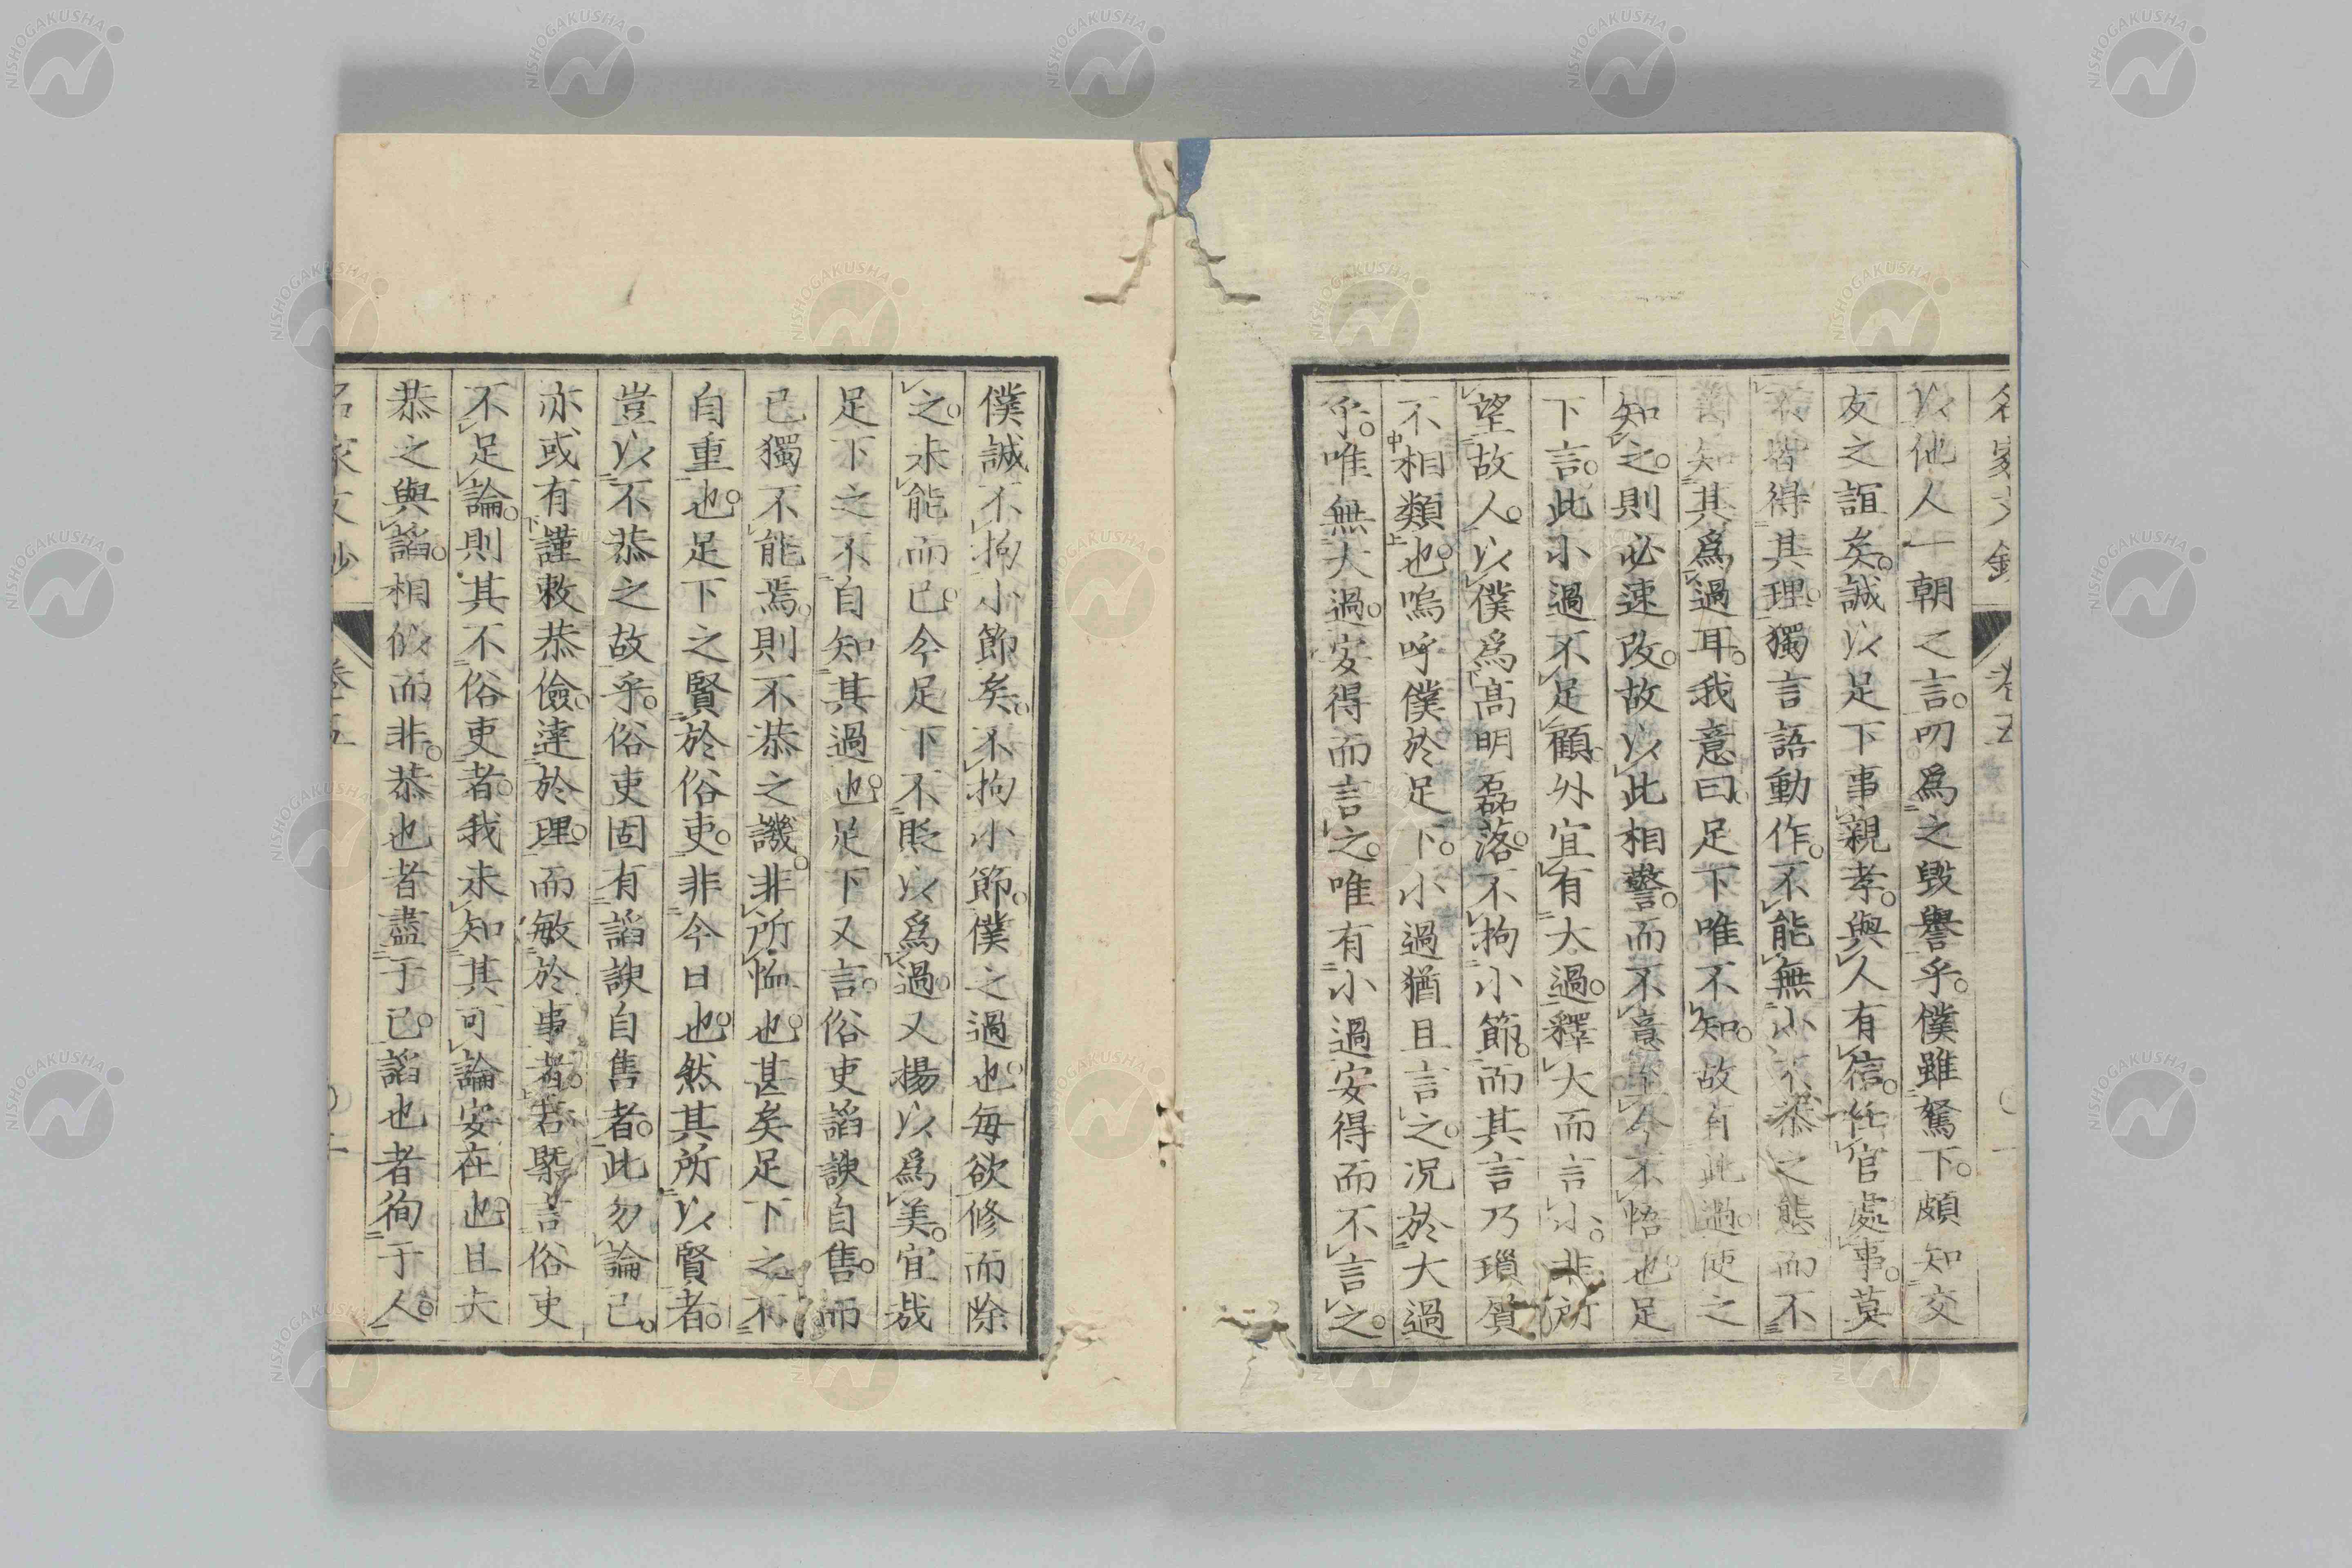 以他人一朝之言。叨爲之毀譽乎。僕雖駑下。頗知交
友之誼矣。誠以足下事親孝。與人有信。任官處事。莫
不皆得其理。獨言語動作。不能無小不恭之態。而不
自知其爲過耳。我意曰。足下唯不知。故有此過。使之
知之。則必速改。故以此相警。而不意至今不悟也。足
下言。此小過不足顧。外宜有大過。釋大而言小。非所
望故人。以僕爲高明磊落。不拘小節。而其言乃瑣質
不相類也。嗚呼僕於足下。小過猶且言之。况於大過
乎。唯無大過。安得而言之。唯有小過安得而不言之。
僕誠不拘小節矣。不拘小節。僕之過也。每欲修而除
之。未能而已。今足下不貶以爲過。又揚以爲美。宜哉
足下之不自知其過也。足下又言。俗吏諂諛自售。而
己獨不能焉。則不恭之譏。非所恤也。甚矣足下之不
自重也。足下之賢於俗吏。非今日也。然其所以賢者。
豈以不恭之故乎。俗吏固有諂諛自售者。此勿論已。
亦或有謹敕恭儉。達於理。而敏於事者。若槩言俗吏
不足論。則其不俗吏者。我未知其可論安在也。且夫
恭之與諂。相似而非。恭也者盡于己。諂也者徇于人。
名家文鈔
卷五
NISHOGAKUSHA